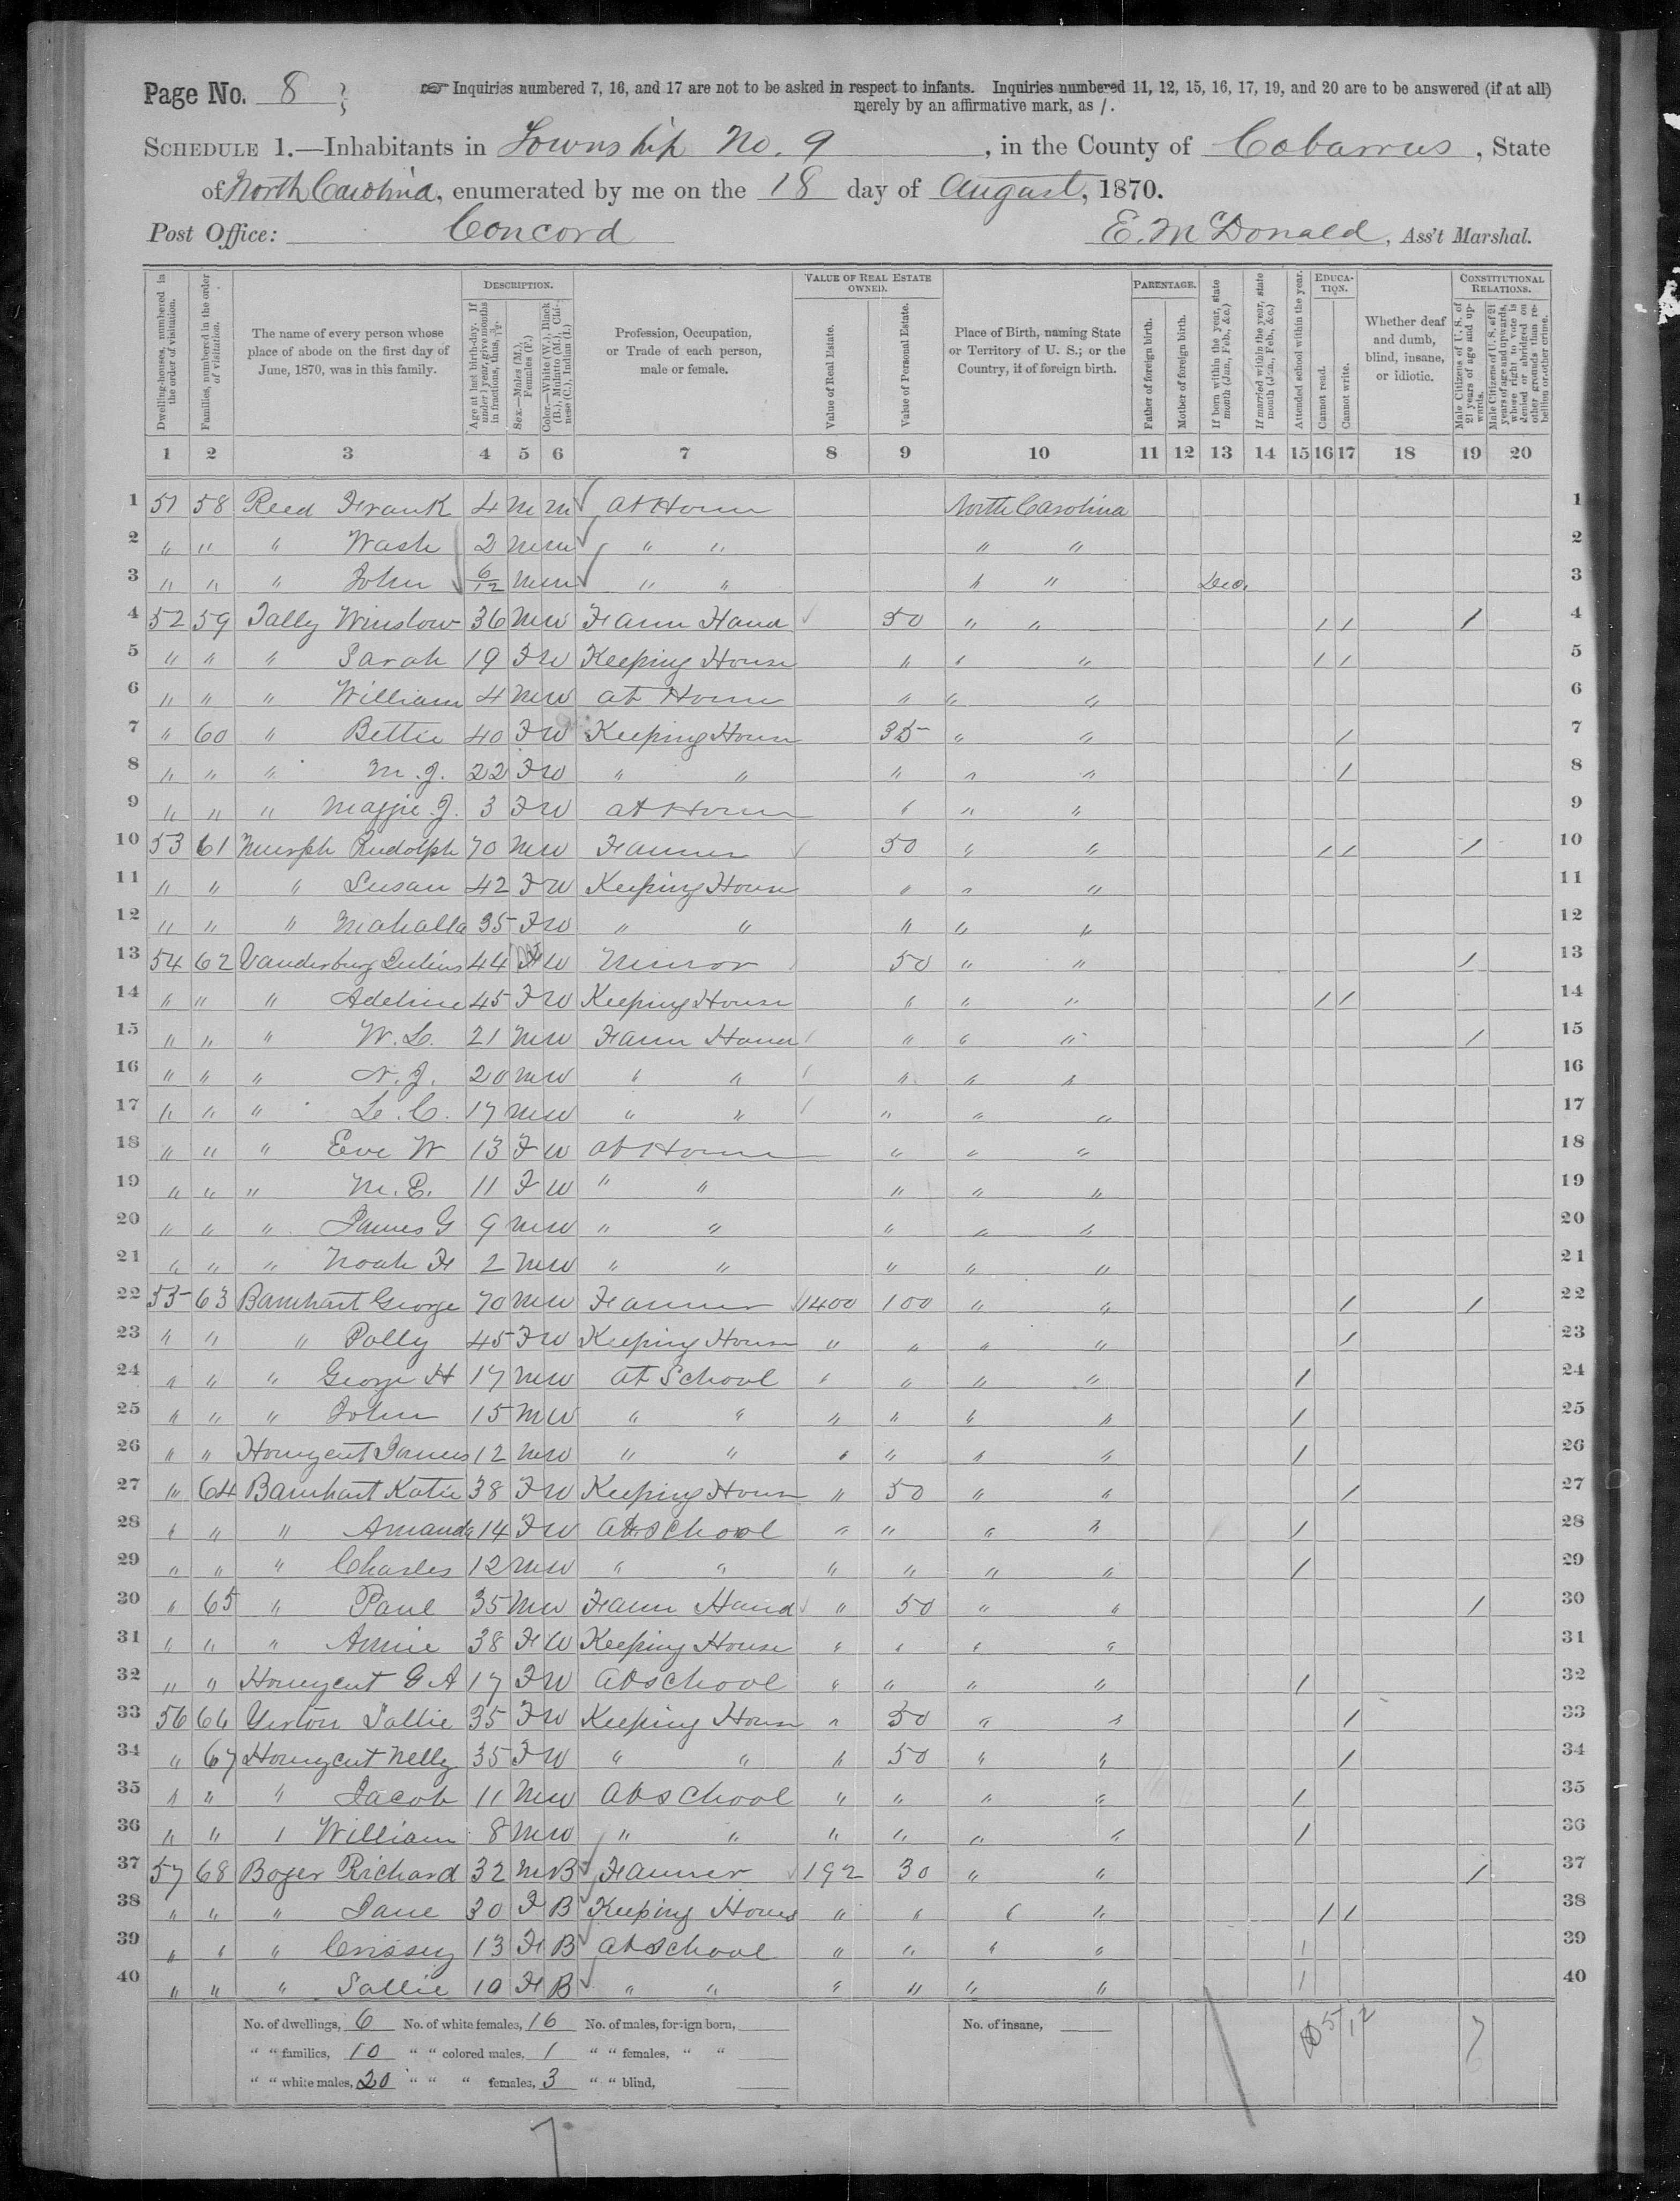 Page No. 8
☞ Inquiries numbered 7, 16, and 17 are not to be asked in respect to infants. Inquiries numbered 11, 12, 15, 16, 17, 19, and 20 are to be answered (if at all)
merely by an affirmative mark, as /.
SCHEDULE 1.—Inhabitants in Township No. 9, in the County of Cabarrus, State
of North Carolina, enumerated by me on the 18 day of August, 1870.
Post Office: Concord E. McDonald, Ass't Marshal.
Dwelling-houses, numbered in the order of visitation.
Families, numbered in the order of visitation.
The name of every person whose place of abode on the first day of June, 1870, was in this family.
DESCRIPTION.
Age at last birth-day. If under 1 year, give months in fractions, thus, 3/12.
Sex.—Males (M.), Females (F.)
Color.—White (W.), Black (B.), Mulatto (M.), Chinese (C.), Indian (I.)
Profession, Occupation, or Trade of each person, male or female.
VALUE OF REAL ESTATE OWNED.
Value of Real Estate.
Value of Personal Estate.
Place of Birth, naming State or Territory of U. S.; or the Country, if of foreign birth.
PARENTAGE.
Father of foreign birth.
Mother of foreign birth.
If born within the year, state month (Jan., Feb., &c.)
If married within the year, state month (Jan., Feb., &c.)
Attended school within the year.
EDUCATION.
Cannot read.
Cannot write.
Whether deaf and dumb, blind, insane, or idiotic.
CONSTITUTIONAL RELATIONS.
Male Citizens of U. S. of 21 years of age and upwards.
Male Citizens of U. S. of 21 years of age and upwards, whose right to vote is denied or abridged on other grounds than rebellion or other crime.
1 2 3 4 5 6 7 8 9 10 11 12 13 14 15 16 17 18 19 20
1 51 58 Reed Frank 4 M M At Home North Carolina 1
2 " " " Wash 2 M M " " " " 2
3 " " " John 6/12 M M " " " " Dec. 3
4 52 59 Tally Winslow 36 M W Farm Hand 50 " " / / / 4
5 " " " Sarah 19 F W Keeping House " " " / / 5
6 " " " William 4 M W At Home " " " 6
7 " 60 " Bettie 40 F W Keeping House 35 " " / 7
8 " " " M. J. 22 F W " " " " " / 8
9 " " " Maggie J. 3 F W At Home " " " 9
10 53 61 Murph Rudolph 70 M W Farmer 50 " " / / / 10
11 " " " Susan 42 F W Keeping House " " " 11
12 " " " Mahalla 35 F W " " " " " 12
13 54 62 Vanderburg Julius 44 M W Minor 50 " " / 13
14 " " " Adeline 45 F W Keeping House " " " / / 14
15 " " " W. L. 21 M W Farm Hand " " " / 15
16 " " " N. J. 20 M W " " " " " 16
17 " " " L. C. 17 M W " " " " " 17
18 " " " Eve W 13 F W At Home " " " 18
19 " " " M. E. 11 F W " " " " " 19
20 " " " James G 9 M W " " " " " 20
21 " " " Noah F 2 M W " " " " " 21
22 55 63 Barnhart George 70 M W Farmer 1400 100 " " / / 22
23 " " " Polly 45 F W Keeping House " " " " / 23
24 " " " George H 17 M W At School " " " " / 24
25 " " " John 15 M W " " " " " " / 25
26 " " Honeycut James 12 M W " " " " " " / 26
27 " 64 Barnhart Katie 38 F W Keeping House " 50 " " / 27
28 " " " Amanda 14 F W At School " " " " / 28
29 " " " Charles 12 M W " " " " " " / 29
30 " 65 " Paul 35 M W Farm Hand " 50 " " / 30
31 " " " Annie 38 F W Keeping House " " " " 31
32 " " Honeycut G A 17 F W At School " " " " / 32
33 56 66 Sallie 35 F W Keeping House " 50 " " / 33
34 " 67 Honeycut Nelly 35 F W " " " 50 " " / 34
35 " " " Jacob 11 M W At School " " " " / 35
36 " " " William 8 M W " " " " " " / 36
37 57 68 Boger Richard 32 M B Farmer 192 30 " " / 37
38 " " " Jane 30 F B Keeping House " " " " / / 38
39 " " " Crissey 13 F B At School " " " " / 39
40 " " " Sallie 10 F B " " " " " " / 40
No. of dwellings, 6 No. of white females, 16 No. of males, foreign born, No. of insane, 5/12 7
" " families, 10 " " colored males, 1 " " females, " "
" " white males, 20 " " " females, 3 " " blind,